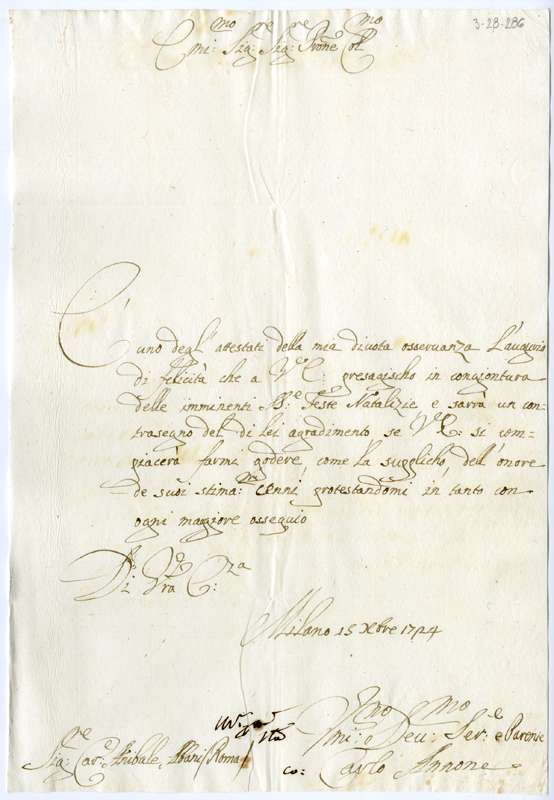 3-28-286
Emi:mo Sig:re Sig:re Prone Col:mo
E' uno degl' attestati della mia divota osservanza l'augurio
di felicità che a V.E: presagischo in congiontura
delle imminenti S:te Feste Natalizie e sarrà un con-
trasegno del di lei agradimento se V.E: si com-
piacerà farmi godere, come la suplicho, dell'onore
de suoi stima:mi cenni, protestandomi in tanto con
ogni maggiore ossequio
Di Vra E:za
Milano 15 Xbre 1724
Umi:mo e Dev:mo Ser:e e Parente
Sig:re Cav:e Anibale, Albani / Roma
co: Carlo Annone